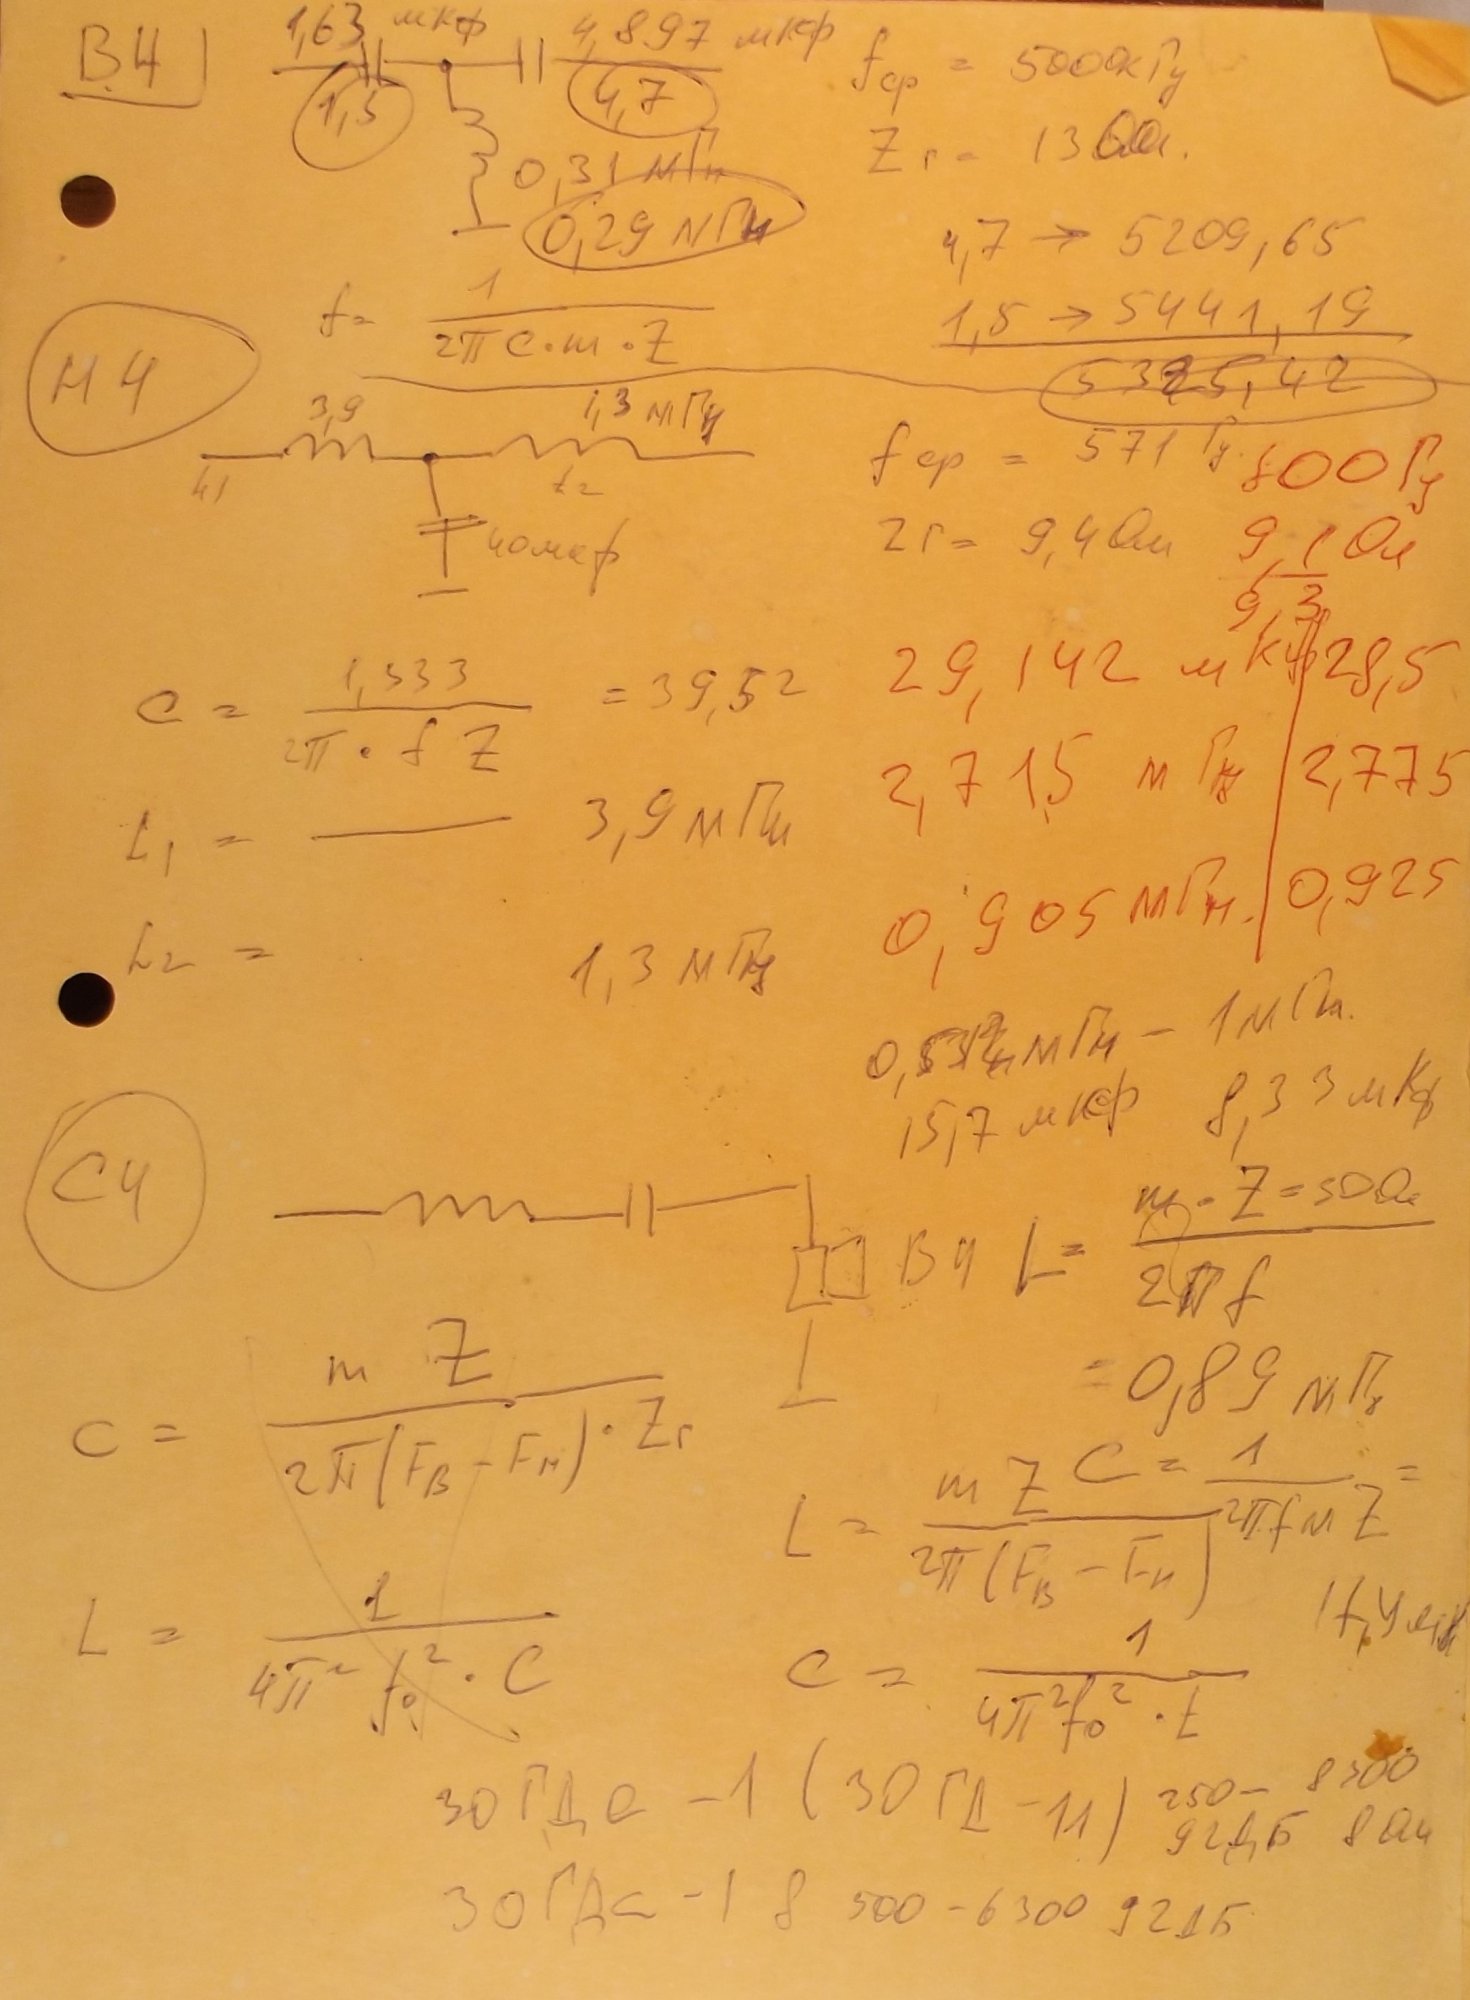 В4
1,63 мкф
4,897 мкф
1,5
4,7
0,31 мГн
0,29 мГн
fср = 5000 Гц
Zг = 13 Ом.
4,7 → 5209,65
1,5 → 5441,19
5325,42
f = 1 / 2π C·m·Z
НЧ
3,9
1,3 мГн
L1
L2
40 мкф
fср = 571 Гц.
800 Гц
Zг = 9,4 Ом
9,1 Ом
9,3
C = 1,333 / 2π·f Z = 39,52
29,142 мкф
28,5
L1 = 3,9 мГн
2,715 мГн
2,775
L2 = 1,3 мГн
0,905 мГн.
0,925
мГн – 1 мГн.
15,7 мкф 8,33 мкф
СЧ
ВЧ
L = m·Z=30 Ом / 2π f
= 0,89 мГн
C = m Z / 2π(FВ – FН)·Zг
L = m Z / 2π(FВ – FН)
C = 1 / 2π f m Z =
L = 1 / 4π² f0²·C
C = 1 / 4π² f0²·L
30ГДС –1 (30ГД–11) 250 – 8300
92дБ 8 Ом
30ГДС –1 8 500 – 6300 92дБ